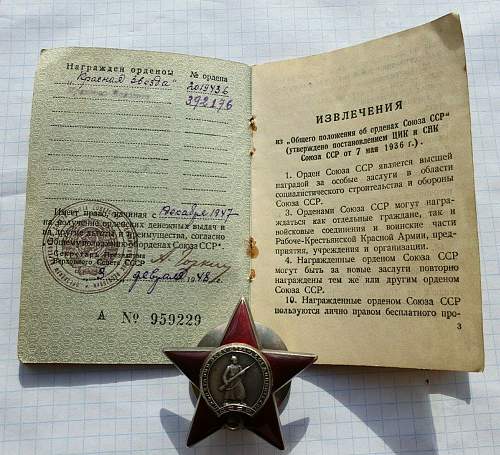 Награжден орденом
№ ордена
„Красная звезда“
2019436
392176
Имеет право, начиная с декабря 1947
на получение орденских денежных выдач и
на другие льготы и преимущества, согласно
Общему положению об орденах Союза ССР".
Секретарь Президиума
Верховного Совета СССР
А. Горкин
5 февраля 1948 г.
А № 959229
ИЗВЛЕЧЕНИЯ
из „Общего положения об орденах Союза ССР“
(утверждено постановлением ЦИК и СНК
Союза ССР от 7 мая 1936 г.).
1. Орден Союза ССР является высшей
наградой за особые заслуги в области
социалистического строительства и обороны
Союза ССР.
3. Орденами Союза ССР могут награ-
ждаться как отдельные граждане, так и
войсковые соединения и воинские части
Рабоче-Крестьянской Красной Армии, пред-
приятия, учреждения и организации.
4. Награжденные орденом Союза ССР
могут быть за новые заслуги повторно
награждены тем же или другим орденом
Союза ССР.
10. Награжденные орденом Союза ССР
пользуются лично правом бесплатного про-
3